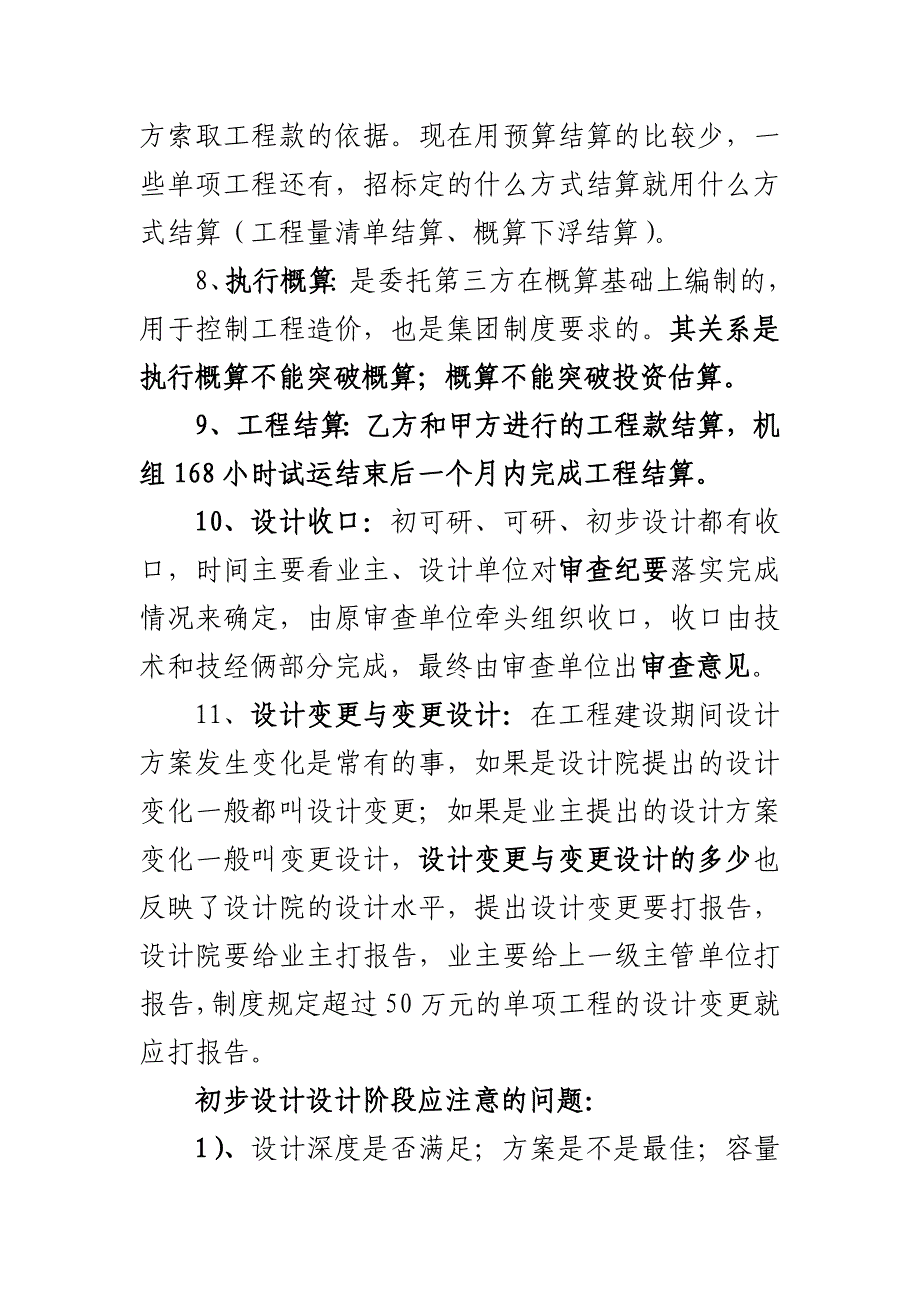 方索取工程款的依据。现在用预算结算的比较少，一
些单项工程还有，招标定的什么方式结算就用什么方
式结算（工程量清单结算、概算下浮结算）。
8、执行概算：是委托第三方在概算基础上编制的，
用于控制工程造价，也是集团制度要求的。其关系是
执行概算不能突破概算；概算不能突破投资估算。
9、工程结算：乙方和甲方进行的工程款结算，机
组168小时试运结束后一个月内完成工程结算。
10、设计收口：初可研、可研、初步设计都有收
口，时间主要看业主、设计单位对审查纪要落实完成
情况来确定，由原审查单位牵头组织收口，收口由技
术和技经俩部分完成，最终由审查单位出审查意见。
11、设计变更与变更设计：在工程建设期间设计
方案发生变化是常有的事，如果是设计院提出的设计
变化一般都叫设计变更；如果是业主提出的设计方案
变化一般叫变更设计，设计变更与变更设计的多少也
反映了设计院的设计水平，提出设计变更要打报告，
设计院要给业主打报告，业主要给上一级主管单位打
报告，制度规定超过50万元的单项工程的设计变更就
应打报告。
初步设计设计阶段应注意的问题：
1）、设计深度是否满足；方案是不是最佳；容量